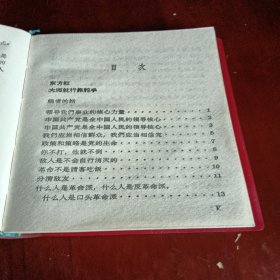 目 次
东方红
大海航行靠舵手
編者的話
領导我們事业的核心力量 1
中国共产党是全中国人民的領导核心 2
中国共产党是全中国人民的領导核心 3
我們应当相信群众，我們应当相信党 5
政策和策略是党的生命 7
你不打，他就不倒 8
敌人是不会自行消灭的 9
革命不是請客吃飯 10
分清敌友 11
什么人是革命派，什么人是反革命派 12
什么人是口头革命派 13
V
是
的
人